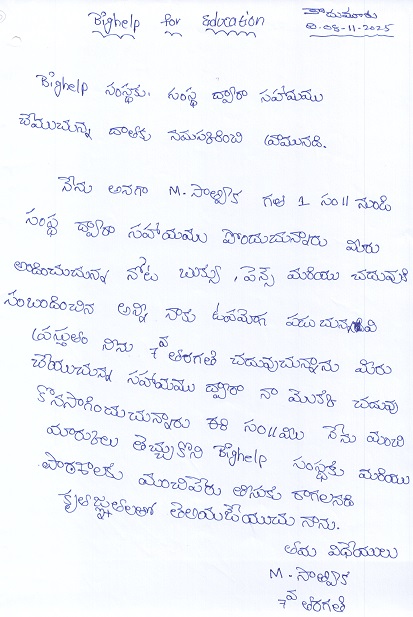 Bighelp for Education
కాదుమూరు
ది.08-11-2025
Bighelp సంస్థకు. సంస్థ ద్వారా సహాయము
చేయుచున్న దాతకు నమస్కరించి వ్రాయునది.
నేను అనగా M. సాత్విక గత 1 సం॥ నుండి
సంస్థ ద్వారా సహాయము పొందుచున్నారు మీరు
అందించుచున్న నోట్ బుక్సు, పెన్స్ మరియు చదువుకి
సంబందించిన అన్ని నాకు ఉపయోగ పడుచున్నవి
ప్రస్తుతం నేను 7వ తరగతి చదువుచున్నాను మీరు
చేయుచున్న సహాయము ద్వారా నా మొదటి చదువు
కొనసాగించుచున్నారు ఈ సం॥ము నేను మంచి
మార్కులు తెచ్చుకొని Bighelp సంస్థకు మరియు
పాఠశాలకు మంచిపేరు తీసుకు రాగలనని
కృతజ్ఞతలతో తెలియజేయుచు నాను.
తమ విధేయులు
M. సాత్విక
7వ తరగతి